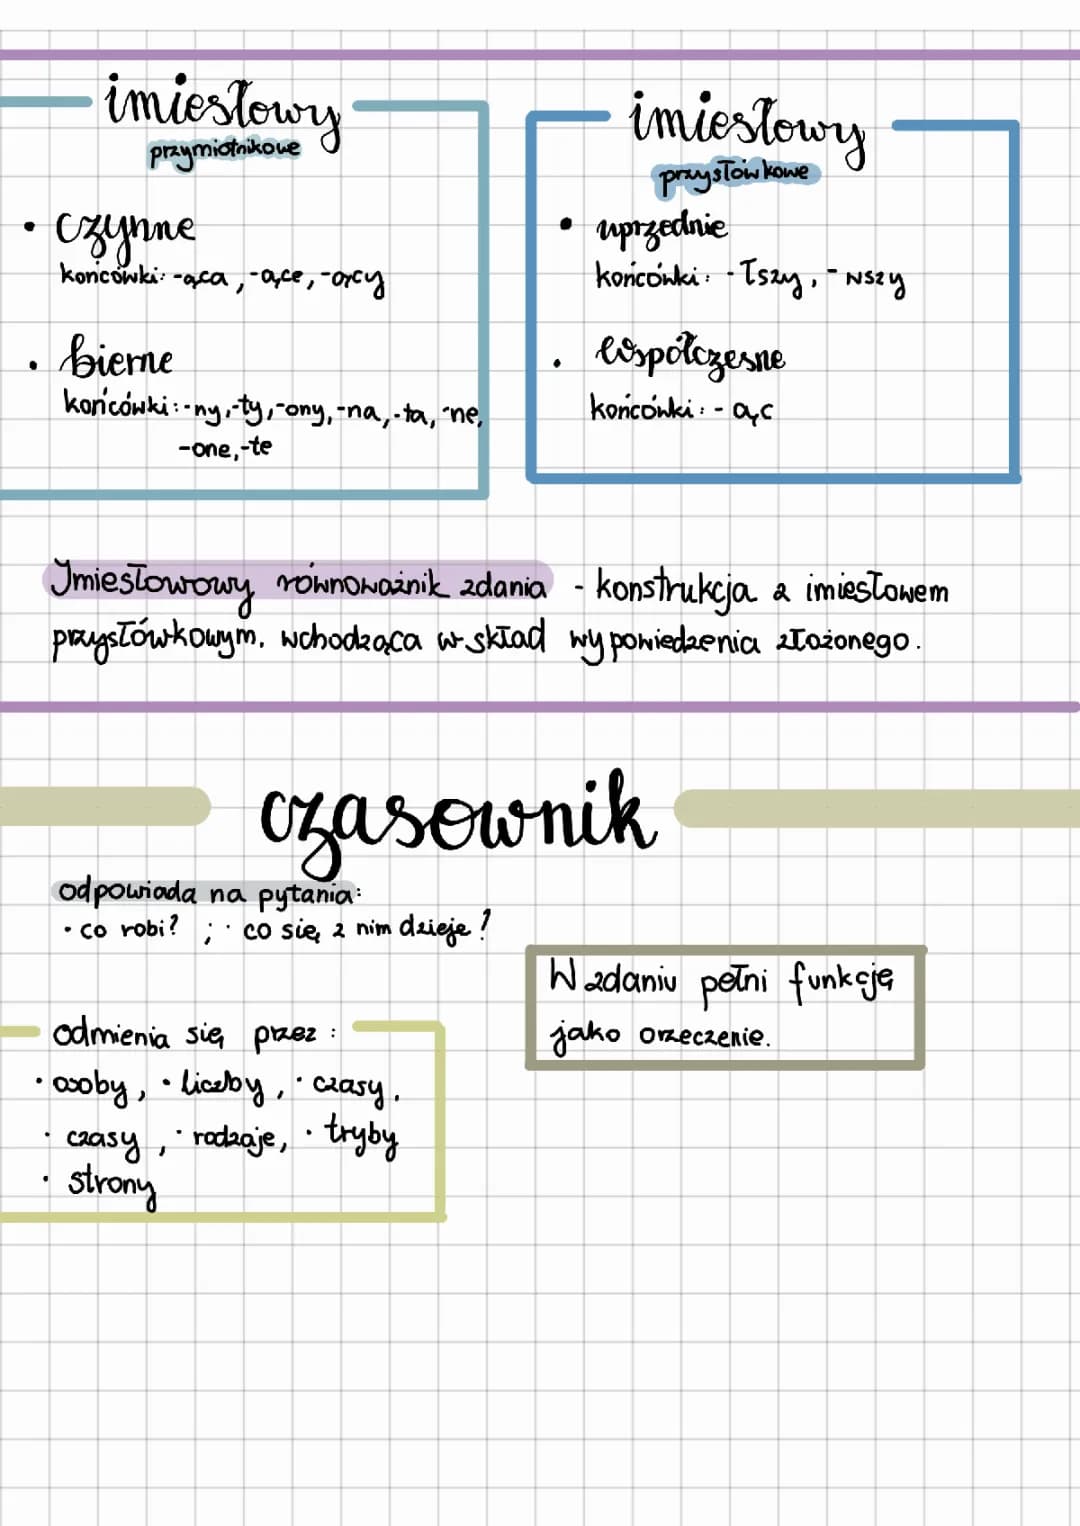 imiesłowy
przymiotnikowe
• czynne
końcówki: -ąca, -ące, -ący
• bierne
końcówki: -ny, -ty, -ony, -na, -ta, -ne,
-one, -te
imiesłowy
przysłówkowe
• uprzednie
końcówki: -łszy, -wszy
• współczesne
końcówki: - ąc
Imiesłowowy równoważnik zdania - konstrukcja z imiesłowem
przysłówkowym, wchodząca w skład wypowiedzenia złożonego.
czasownik
odpowiada na pytania:
• co robi? ; • co się z nim dzieje?
odmienia się przez:
• osoby, • liczby, • czasy,
• czasy, • rodzaje, • tryby
• strony
W zdaniu pełni funkcję
jako orzeczenie.